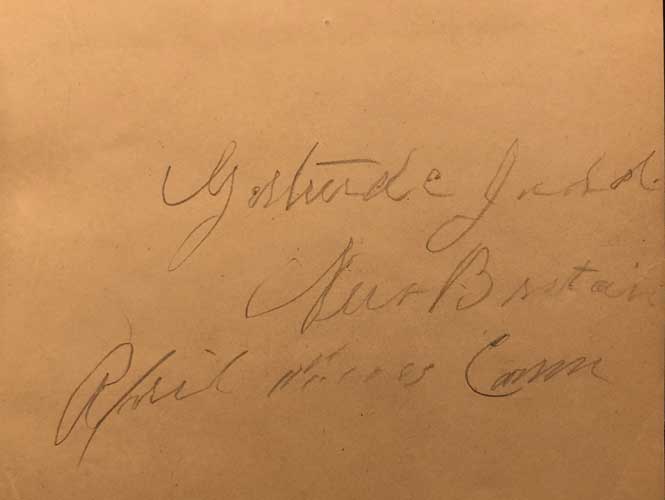 Gertrude Judd
New Britain
April Conn